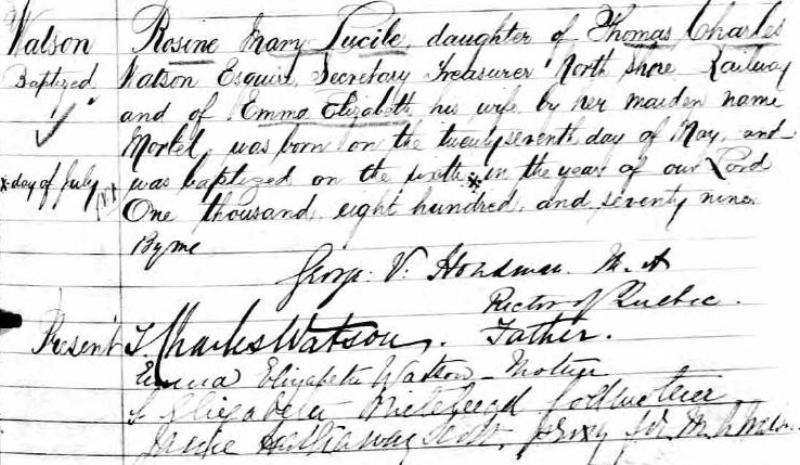 Watson Rosine Mary Lucile, daughter of Thomas Charles
Baptized Watson Esquire, Secretary Treasurer North Shore Railway
and of Emma Elizabeth his wife by her maiden name
was born on the twentyseventh day of May, and
x day of July was baptized on the x in the year of our Lord
One thousand, eight hundred, and seventy nine
By me
Georg. V. M. A
Rector of Quebec.
Present T. Charles Watson. Father.
Emma Elizabeth Watson - Mother
Elizabeth Godmother
Hathaway proxy for